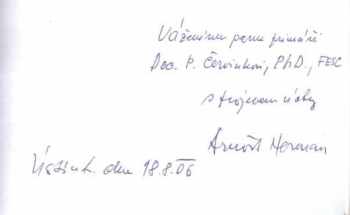 Váženému panu primáři
Doc. P. Červinkovi, PhD., FESC
s projevem úcty
Arnošt
Ústí n. L. dne 18.8.06